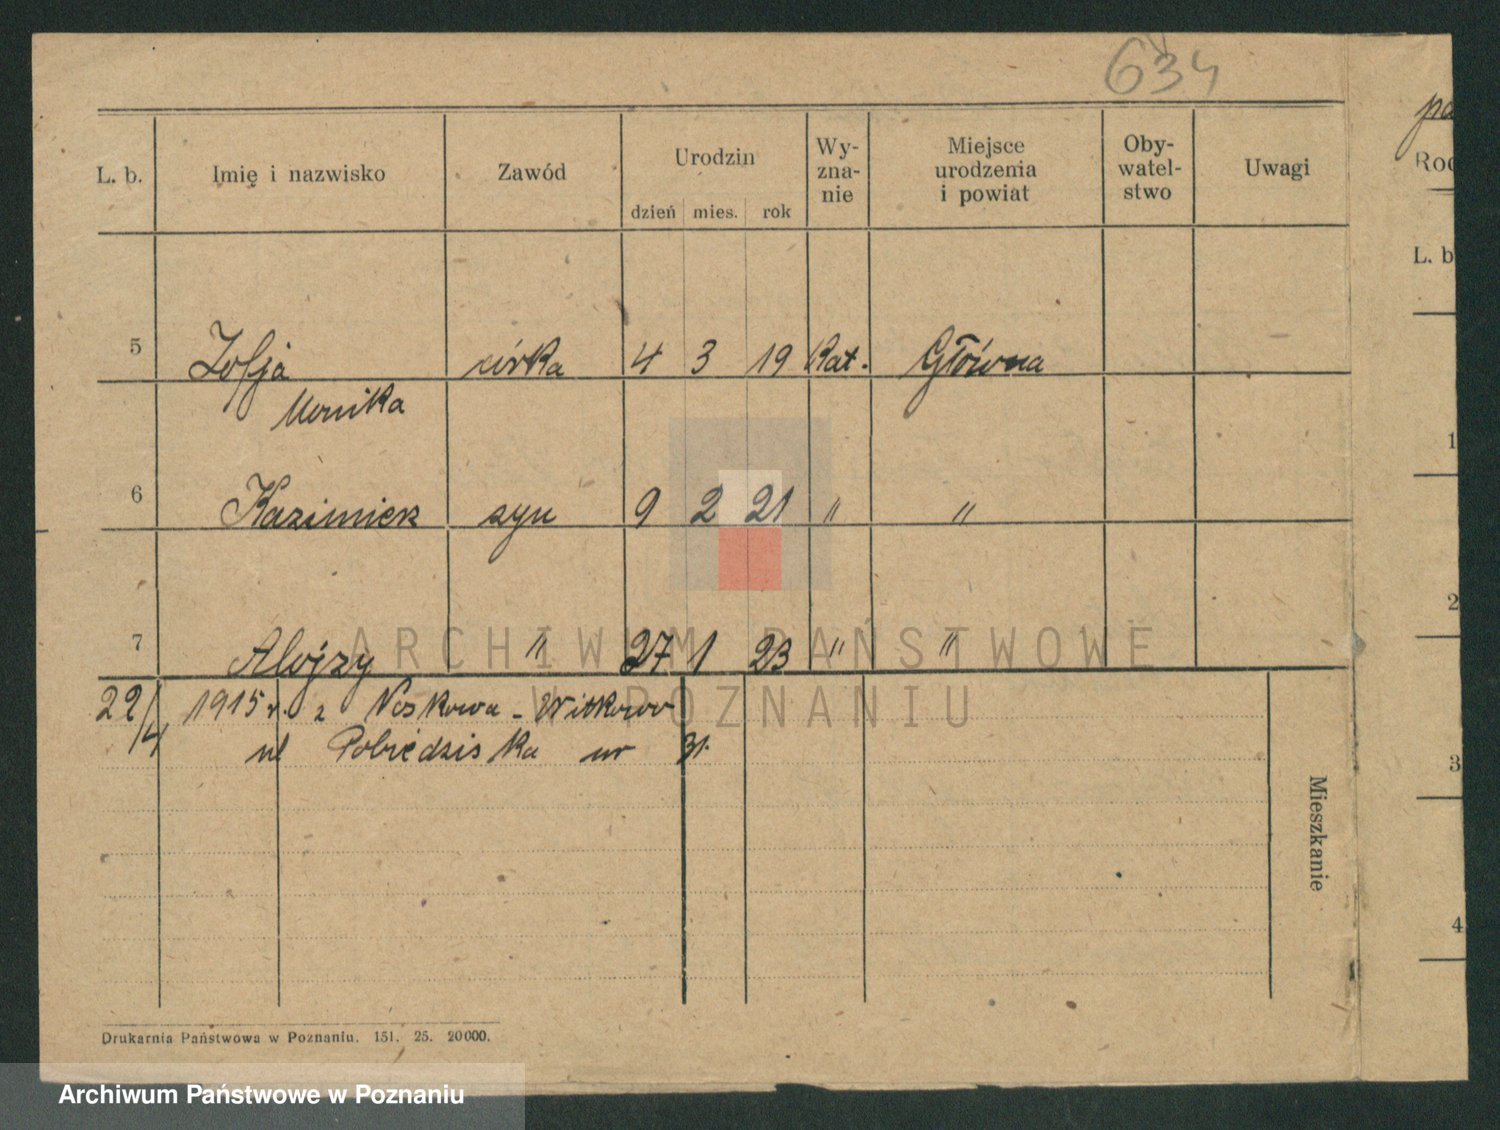 634
L. b. Imię i nazwisko Zawód Urodzin Wy- Miejsce Oby- Uwagi
zna- urodzenia watel-
nie i powiat stwo
dzień mies. rok
5 Zofja córka 4 3 19 Kat. Główna
Monika
6 Kazimierz syn 9 2 21 " "
7 Alojzy " 27 1 23 " "
22/4 1915 r. z Noskowa - Witkowo
ul Pobiedziska nr 31.
Mieszkanie
Drukarnia Państwowa w Poznaniu. 151. 25. 20000.
L. b
1
2
3
4
ARCHIWUM PAŃSTWOWE
W POZNANIU
Archiwum Państwowe w Poznaniu